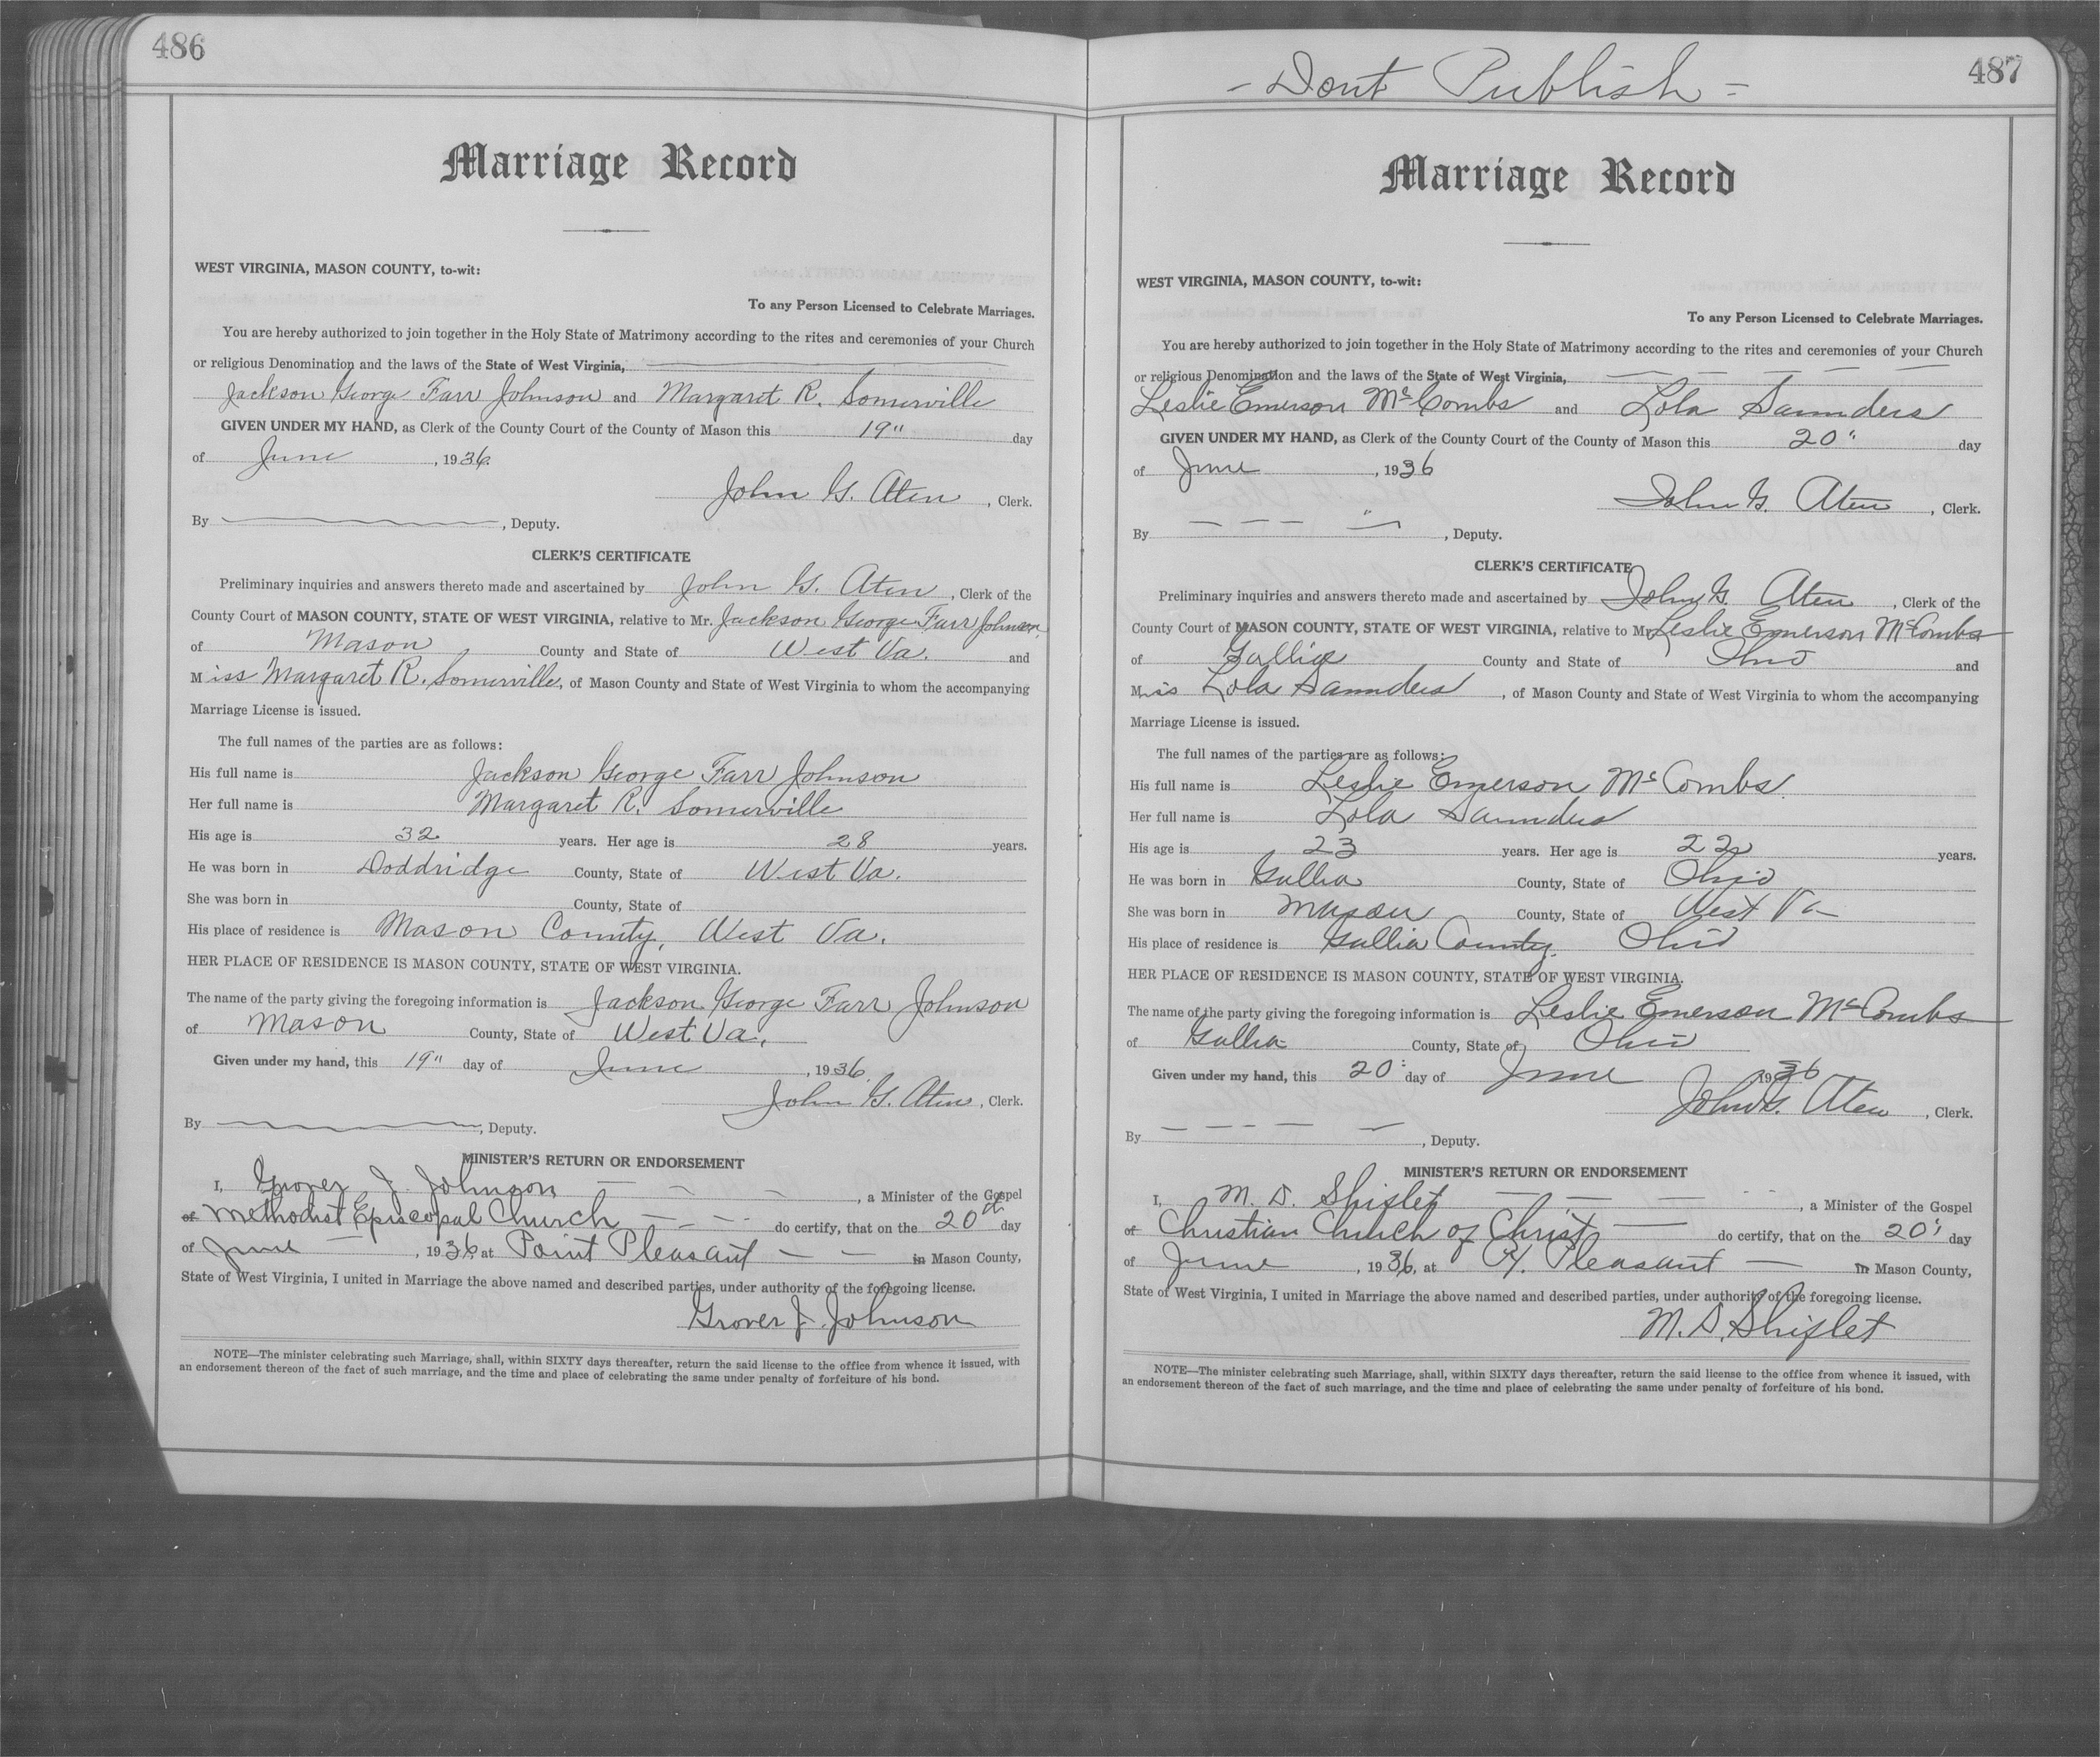 486
Marriage Record
WEST VIRGINIA, MASON COUNTY, to-wit:
To any Person Licensed to Celebrate Marriages.
You are hereby authorized to join together in the Holy State of Matrimony according to the rites and ceremonies of your Church
or religious Denomination and the laws of the State of West Virginia,
Jackson George Farr Johnson and Margaret R. Somerville
GIVEN UNDER MY HAND, as Clerk of the County Court of the County of Mason this 19" day
of June, 1936.
John G. Aten, Clerk.
By , Deputy.
CLERK'S CERTIFICATE
Preliminary inquiries and answers thereto made and ascertained by John G. Aten, Clerk of the
County Court of MASON COUNTY, STATE OF WEST VIRGINIA, relative to Mr. Jackson George Farr Johnson
of Mason County and State of West Va. and
Miss Margaret R. Somerville, of Mason County and State of West Virginia to whom the accompanying
Marriage License is issued.
The full names of the parties are as follows:
His full name is Jackson George Farr Johnson
Her full name is Margaret R. Somerville
His age is 32 years. Her age is 28 years.
He was born in Doddridge County, State of West Va.
She was born in County, State of
His place of residence is Mason County, West Va.
HER PLACE OF RESIDENCE IS MASON COUNTY, STATE OF WEST VIRGINIA.
The name of the party giving the foregoing information is Jackson George Farr Johnson
of Mason County, State of West Va.
Given under my hand, this 19" day of June, 1936.
John G. Aten, Clerk.
By , Deputy.
MINISTER'S RETURN OR ENDORSEMENT
I, Grover J. Johnson, a Minister of the Gospel
of Methodist Episcopal Church do certify, that on the 20th day
of June, 1936, at Point Pleasant in Mason County,
State of West Virginia, I united in Marriage the above named and described parties, under authority of the foregoing license.
Grover J. Johnson
NOTE—The minister celebrating such Marriage, shall, within SIXTY days thereafter, return the said license to the office from whence it issued, with
an endorsement thereon of the fact of such marriage, and the time and place of celebrating the same under penalty of forfeiture of his bond.
- Dont Publish -
487
Marriage Record
WEST VIRGINIA, MASON COUNTY, to-wit:
To any Person Licensed to Celebrate Marriages.
You are hereby authorized to join together in the Holy State of Matrimony according to the rites and ceremonies of your Church
or religious Denomination and the laws of the State of West Virginia,
Leslie Emerson McCombs and Lola Saunders
GIVEN UNDER MY HAND, as Clerk of the County Court of the County of Mason this 20" day
of June, 1936
John G. Aten, Clerk.
By , Deputy.
CLERK'S CERTIFICATE
Preliminary inquiries and answers thereto made and ascertained by John G. Aten, Clerk of the
County Court of MASON COUNTY, STATE OF WEST VIRGINIA, relative to Mr. Leslie Emerson McCombs
of Gallia County and State of Ohio and
Miss Lola Saunders, of Mason County and State of West Virginia to whom the accompanying
Marriage License is issued.
The full names of the parties are as follows:
His full name is Leslie Emerson McCombs
Her full name is Lola Saunders
His age is 23 years. Her age is 22 years.
He was born in Gallia County, State of Ohio
She was born in Mason County, State of West Va
His place of residence is Gallia County, Ohio
HER PLACE OF RESIDENCE IS MASON COUNTY, STATE OF WEST VIRGINIA.
The name of the party giving the foregoing information is Leslie Emerson McCombs
of Gallia County, State of Ohio
Given under my hand, this 20" day of June 1936
John G. Aten, Clerk.
By , Deputy.
MINISTER'S RETURN OR ENDORSEMENT
I, M. D. Shiflet, a Minister of the Gospel
of Christian Church of Christ do certify, that on the 20" day
of June, 1936, at Pt. Pleasant in Mason County,
State of West Virginia, I united in Marriage the above named and described parties, under authority of the foregoing license.
M. D. Shiflet
NOTE—The minister celebrating such Marriage, shall, within SIXTY days thereafter, return the said license to the office from whence it issued, with
an endorsement thereon of the fact of such marriage, and the time and place of celebrating the same under penalty of forfeiture of his bond.